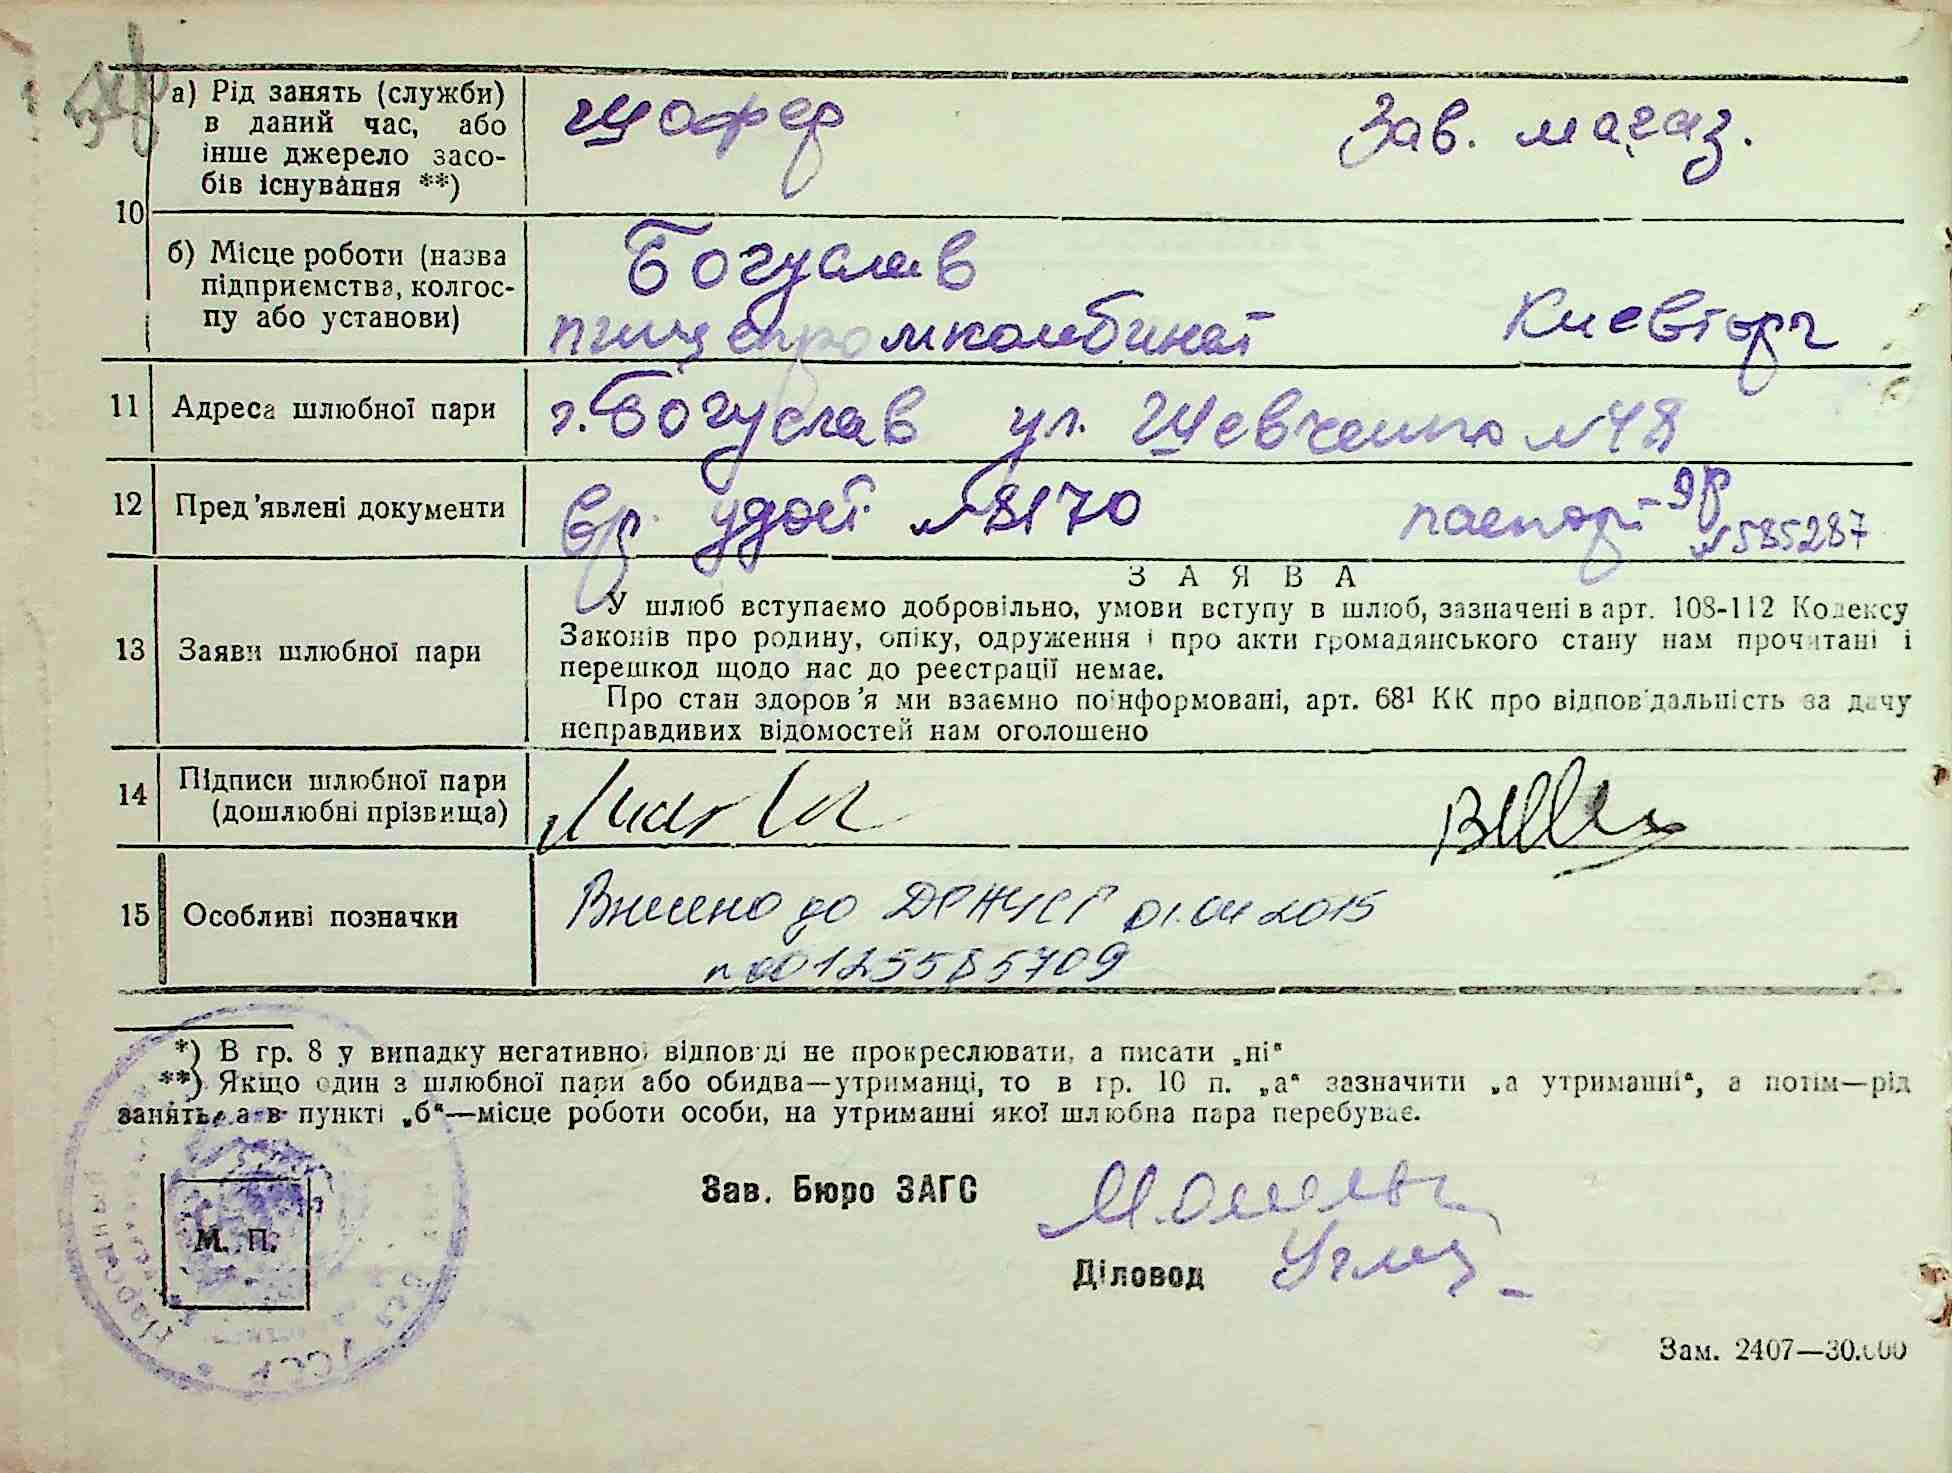 а) Рід занять (служби)
в даний час, або
інше джерело засо-
бів існування **)
шофер
Зав. магаз.
10
б) Місце роботи (назва
підприємства, колгос-
пу або установи)
Богуслав
пищепромкомбинат
Киевторг
11 Адреса шлюбної пари
г. Богуслав ул. Шевченко №48
12 Пред'явлені документи
вр. удост. №8170
паспорт
№585287
13 Заяви шлюбної пари
ЗАЯВА
У шлюб вступаємо добровільно, умови вступу в шлюб, зазначені в арт. 108-112 Кодексу
Законів про родину, опіку, одруження і про акти громадянського стану нам прочитані і
перешкод щодо нас до реєстрації немає.
Про стан здоров'я ми взаємно поінформовані, арт. 68¹ КК про відповідальність за дачу
неправдивих відомостей нам оголошено
14 Підписи шлюбної пари
(дошлюбні прізвища)
15 Особливі позначки
Внесено до 01.04 2015
00125585709
*) В гр. 8 у випадку негативної відповіді не прокреслювати, а писати „ні“
**) Якщо один з шлюбної пари або обидва—утриманці, то в гр. 10 п. „а“ зазначити „а утриманні“, а потім—рід
занять, а в пункті „б“—місце роботи особи, на утриманні якої шлюбна пара перебуває.
Зав. Бюро ЗАГС
М. П.
Діловод
УССР
Зам. 2407—30.000